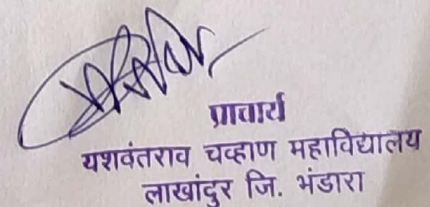 प्राचार्य
यशवंतराव चव्हाण महाविद्यालय
लाखांदुर जि. भंडारा